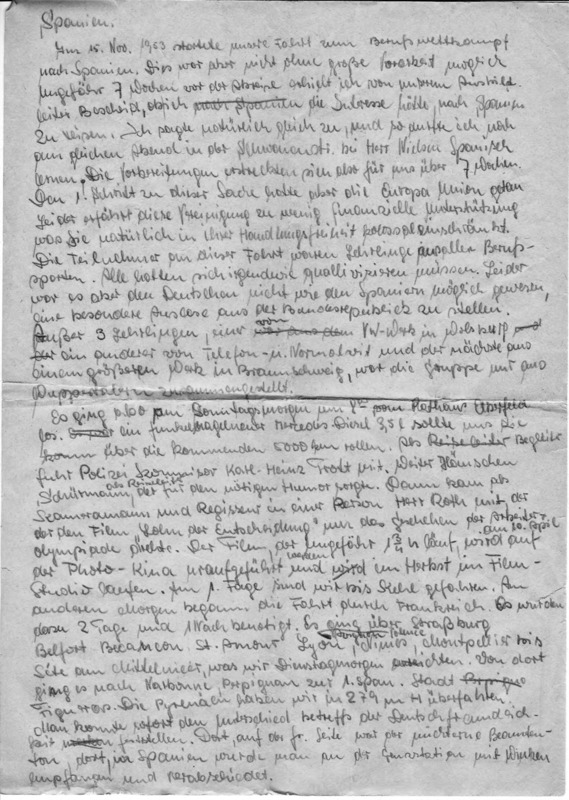 Spanien.
Am 15. Nov. 1963 startete unsere Fahrt zum Berufswettkampf
nach Spanien. Dies war aber nicht ohne große Vorarbeit möglich
Ungefähr 7 Wochen vor der Abreise erhielt ich von unserem Ausbild.
leiter Bescheid, ob ich nach Spanien die Interesse hätte, nach Spanien
zu reisen. Ich sagte natürlich gleich zu, und so durfte ich noch
am gleichen Abend in der Schwanenstr. bei Herr Nielsen Spanisch
lernen. Die Vorbereitungen erstreckten sich also für uns über 7 Wochen.
Den 1. Schritt zu dieser Sache hatte aber die Europa Union getan
Leider erfährt diese Vereinigung zu wenig finanzielle Unterstützung
was Sie natürlich in Ihrer Handlungsfreiheit kolossal einschränkt.
Die Teilnehmer an dieser Fahrt waren Lehrlinge aus allen Berufs-
sparten. Alle hatten sich irgendwie quallivizieren müssen. Leider
war es aber den Deutschen nicht wie den Spaniern möglich gewesen,
eine besondere Auslese aus der Bundesrepublick zu stellen.
Außer 3 Lehrlingen, einer von VW-Werk in Wolfsburg
ein anderer von Telefon- u. Normalzeit und der nächste aus
einem größeren Werk in Braunschweig, war die Gruppe nur aus
Wuppertalern zusammengestellt.
Es ging also am Sonntagmorgen um vom Rathaus Elberfeld
los. ein funkelnagelneuer Mercedes Diesel 3,5 l sollte uns die
kommenden 5000 km rollen. Als Reiseleiter Begleiter
fuhr Polizei Kommissar Karl-Heinz Trott mit. Weiter Hänschen
als Reiseleiter
Schürmann, der für den nötigen Humor sorgte. Dann kam als
Kameramann und Regisseur in einer Person Herr Roth mit der
der den Film "Lohn der Entscheidung" um das Geschehen der Arbeiter-
am 10. April
olympiade drehte. Der Film, der ungefähr 1 3/4 h läuft, wird auf
der Photo-Kina uraufgeführt werden und wird im Herbst im Film-
Studio laufen. Am 1. Tage sind wir bis Kehl gefahren. Am
anderen Morgen begann die Fahrt durch Frankreich. Es wurden
dazu 2 Tage und 1 Nacht benötigt. Es ging über Straßburg
Belfort Besancon St. Amour Lyon, Nimes, Montpellier bis
Sète am Mittelmeer, was wir Dienstagmorgen erreichten. Von dort
ging es nach Narbonne, Perpignan zur 1. span. Stadt
Figueras. Die Pyrenäen haben wir in 279 m H überfahren.
Man konnte sofort den Unterschied betreffs der Deutschfreundlich-
keit feststellen. Dort, auf der fr. Seite war der nüchterne Beamten-
ton, dort, in Spanien wurde man an der Grenzstation mit Winken
empfangen und verabschiedet.